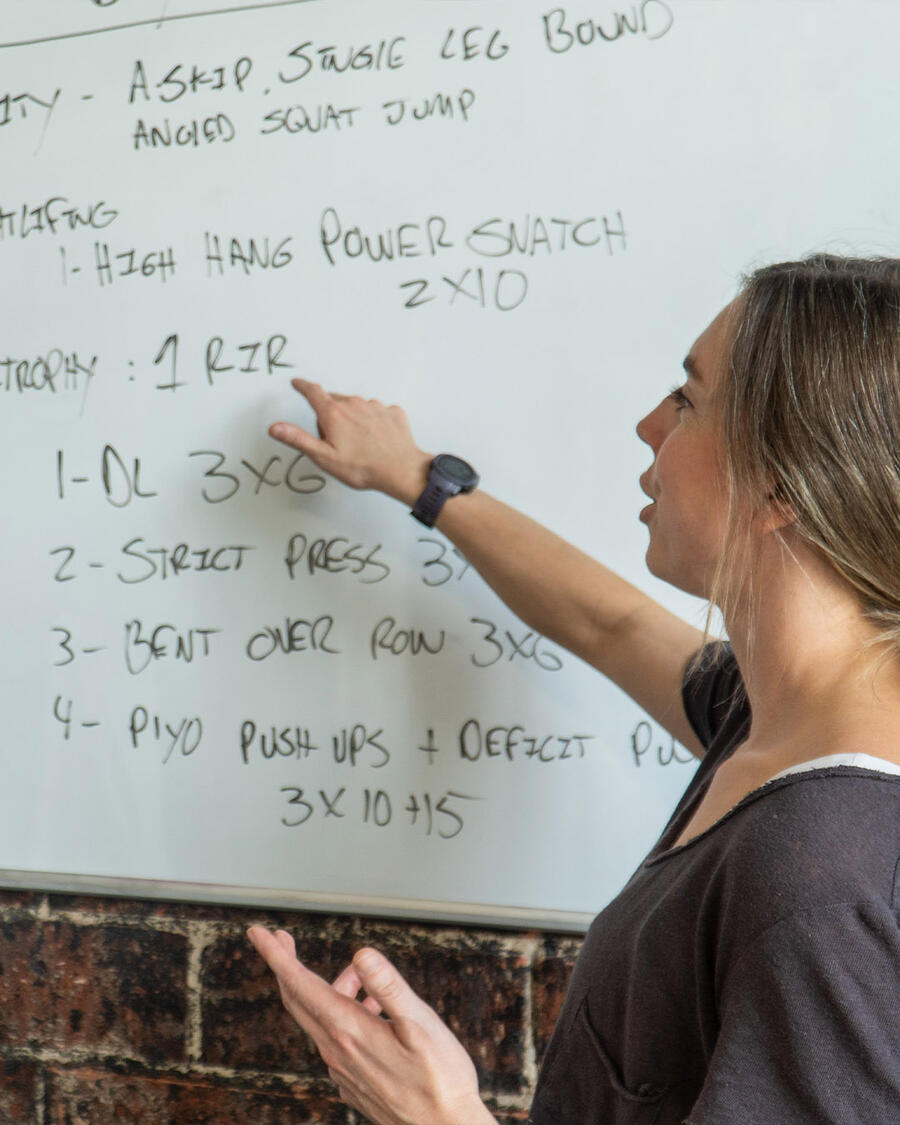 ITY - A-SKIP, SINGLE LEG BOUND
ANGLED SQUAT JUMP
TLIFTNG
1- HIGH HANG POWER SNATCH
2X10
TROPHY : 1 RIR
1- DL 3X6
2- STRICT PRESS 3X
3- BENT OVER ROW 3X6
4- PIYO PUSH UPS + DEFICIT PU
3X10+15